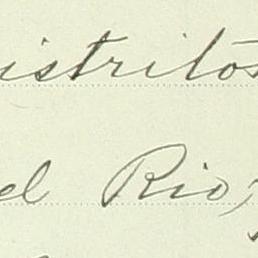 istritos
d Rio,